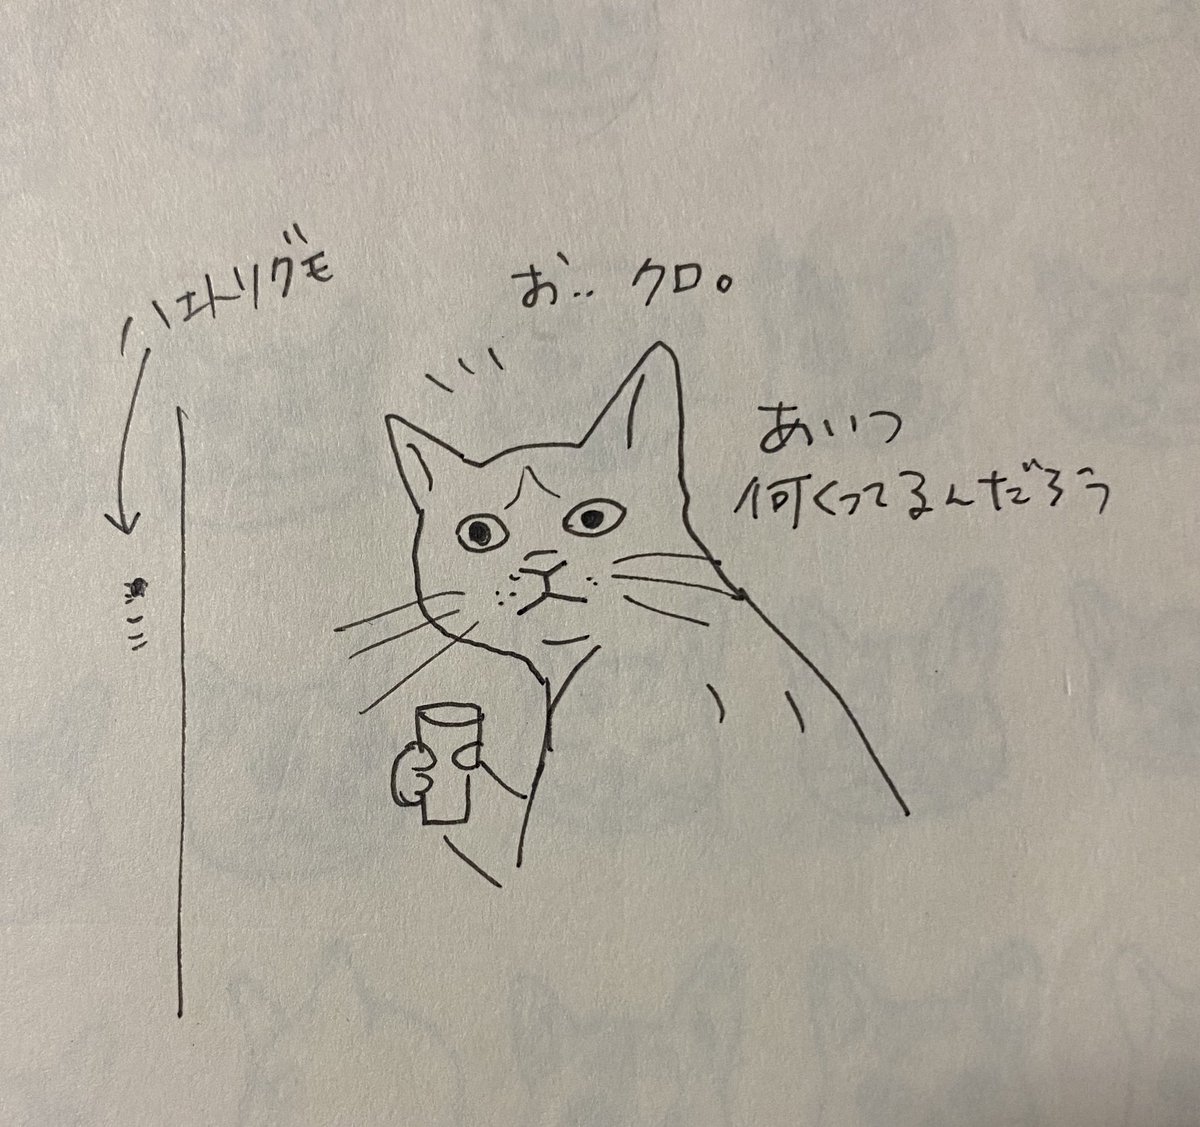 ハエトリグモ
お‥クロ。
あいつ
何くってるんだろう